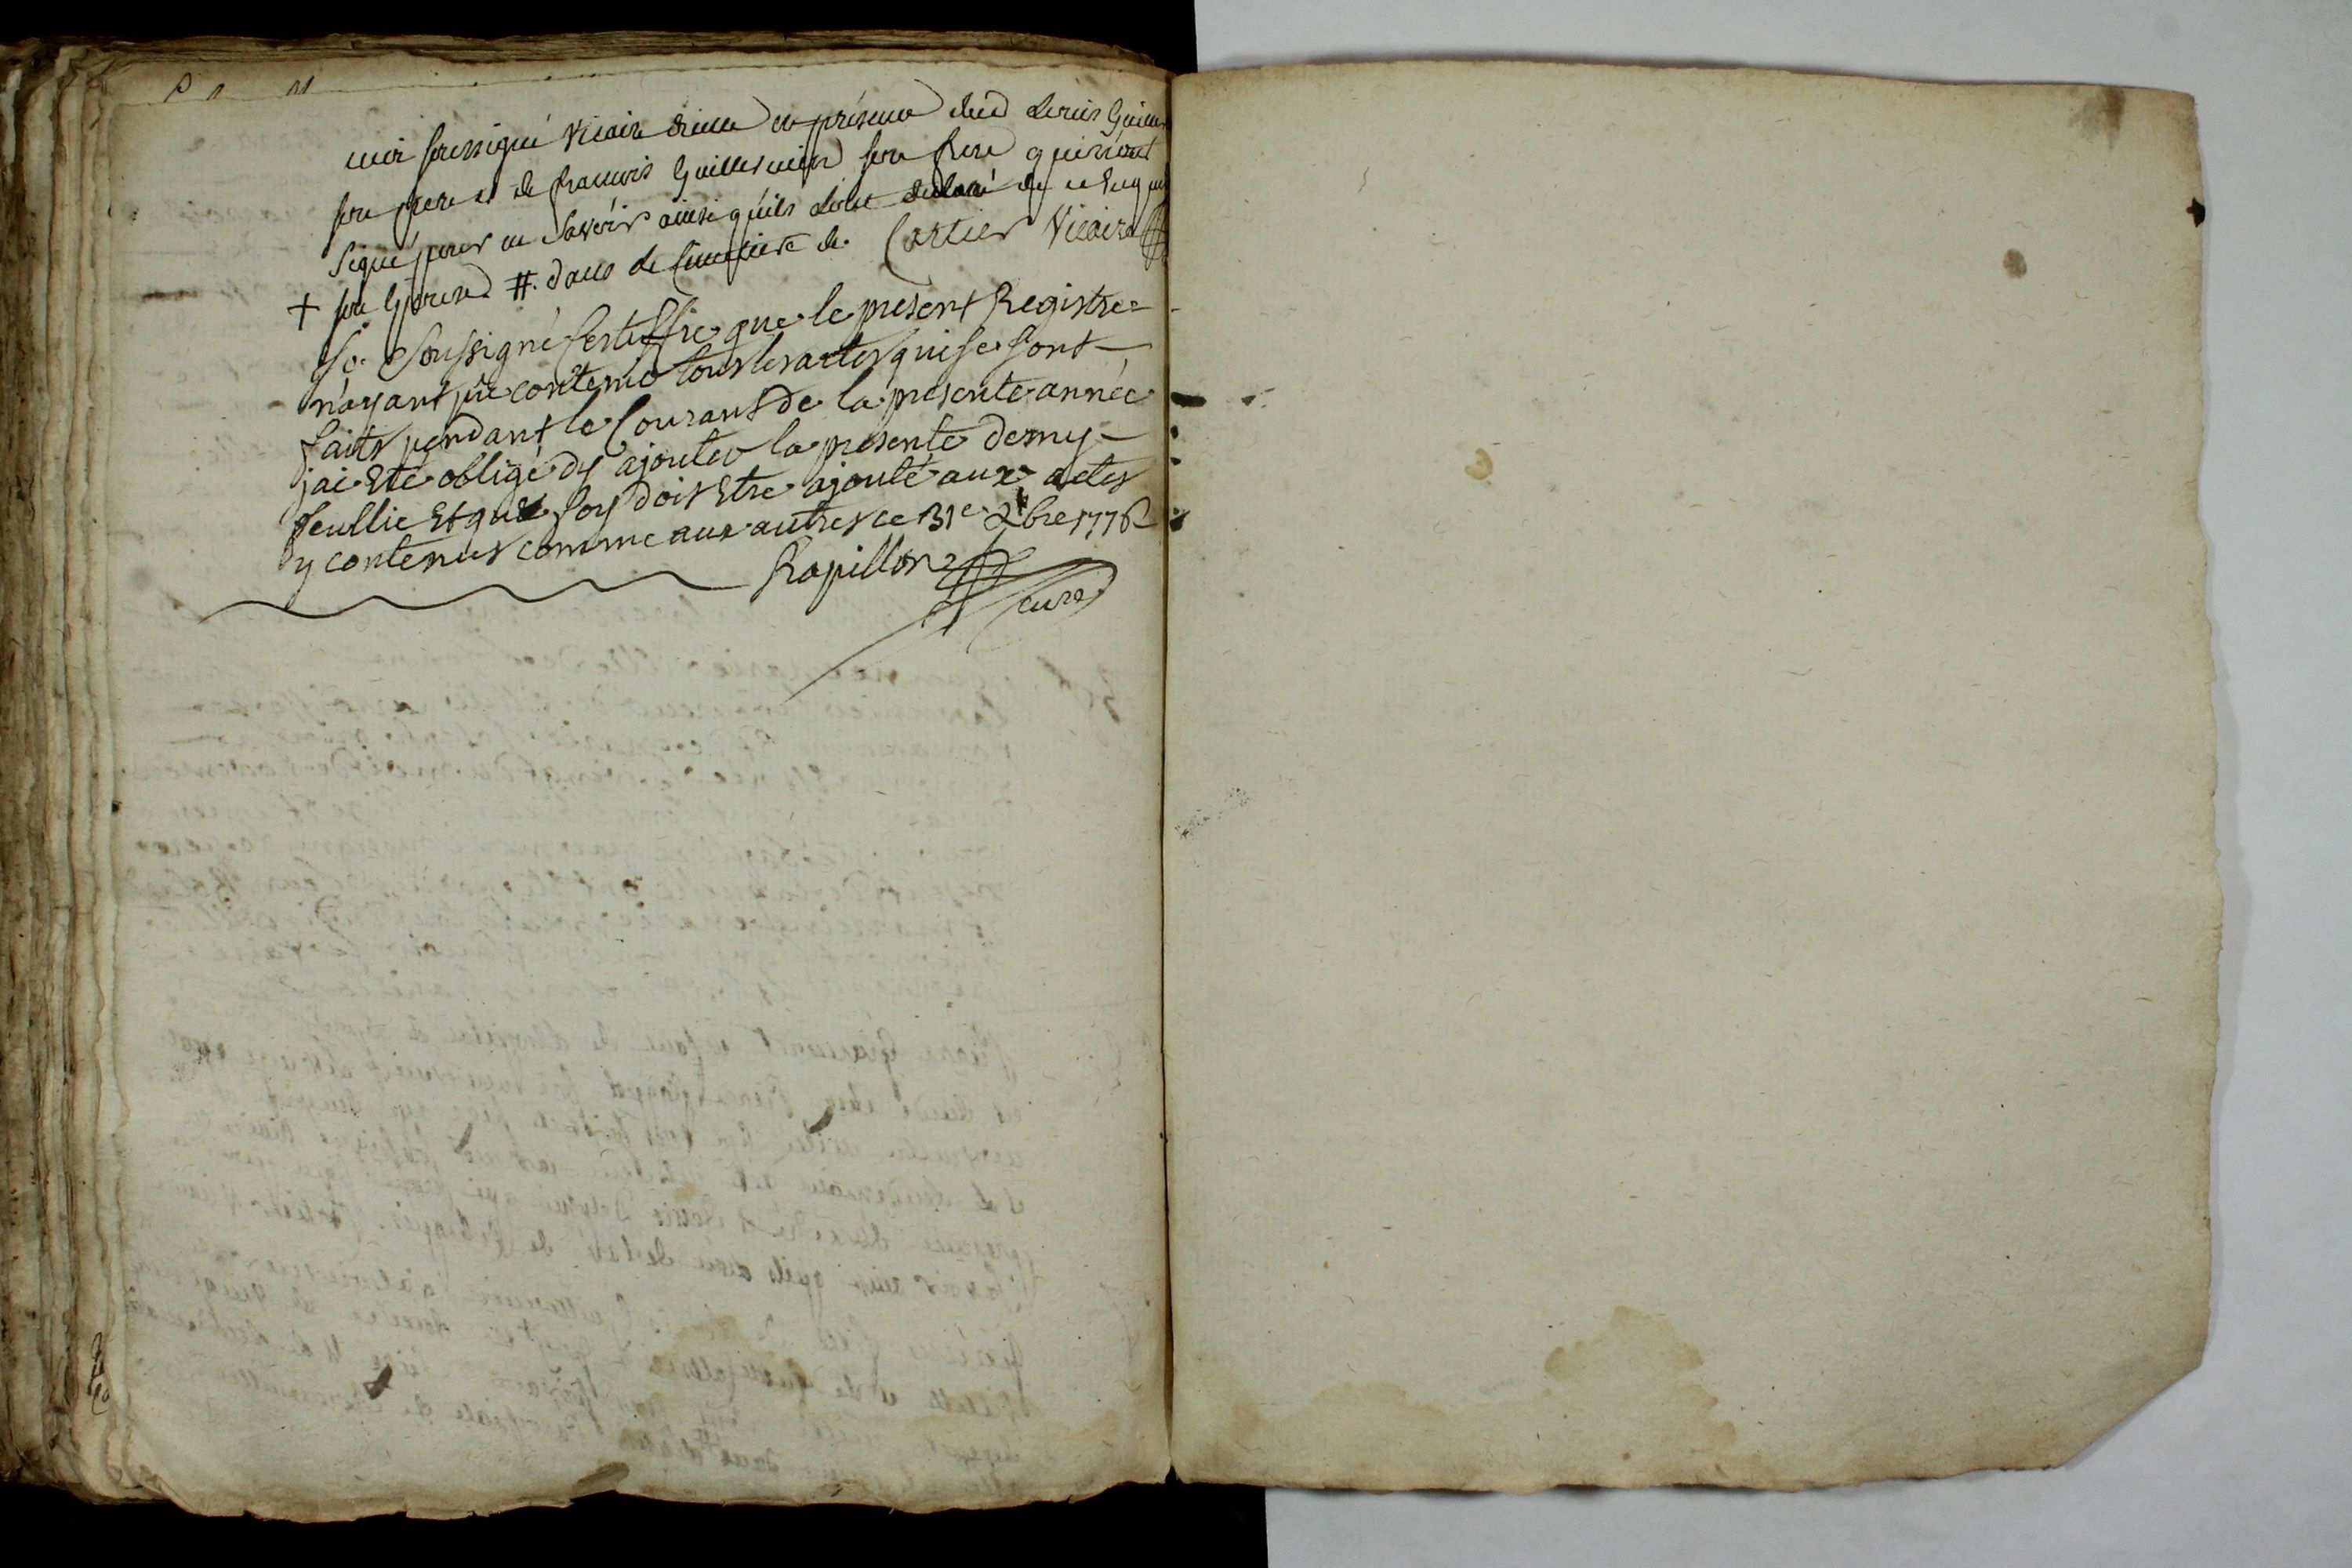 moi soussigné Vicaire d'icelle en présence dud denis
son pere et de francois Guillermin son frere qui n'ont
signé pour ne savoir ainsi qu'ils l'ont declaré de ce enquis
+ son Epouse # dans le Cimetiere de Cartier Vicaire
Je Soussigné Certiffie que le present Registre
n'ayant pû contenir tous les actes qui se sont
faits pendant le Courant de la presente année
jai Eté obligé dy ajouter la presente demy
feullie Et que foy doit Etre ajouté aux actes
y contenus comme aux autres ce 31e Xbre 1776
Rapillon
curé